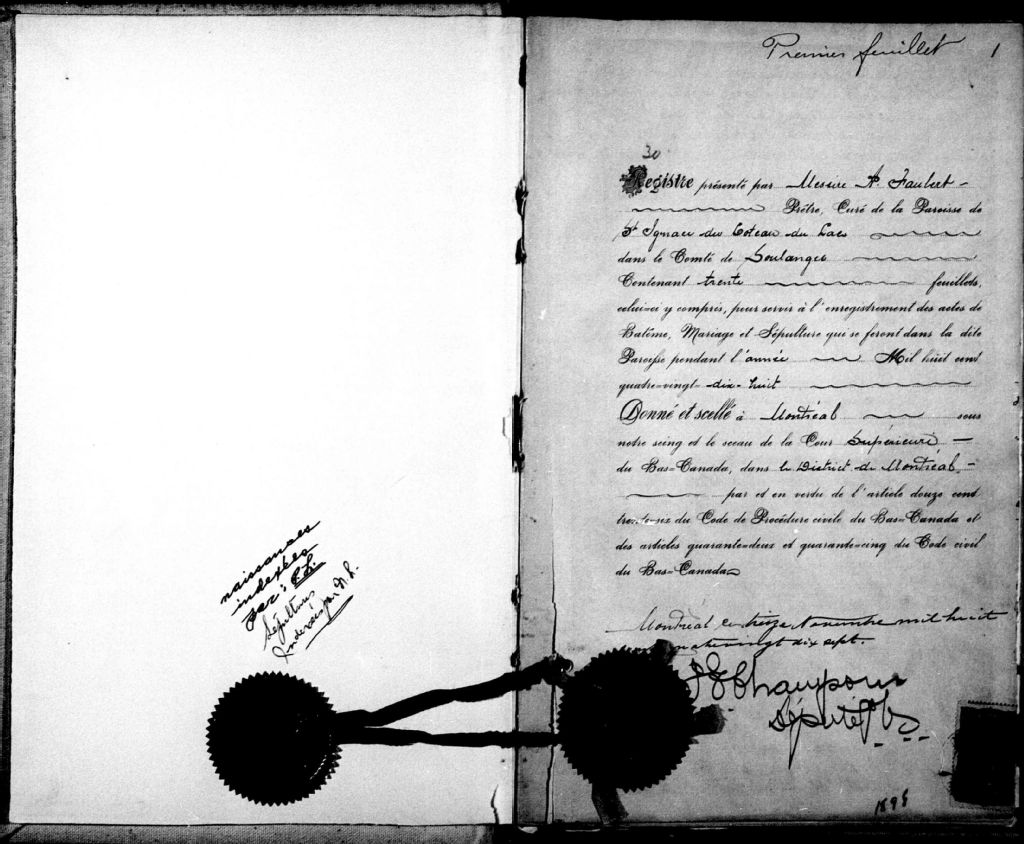 naissances
indexées
par: P.L.
Sépultures
Indexées par N. L.
Premier feuillet 1
30
Registre présenté par Messire A. Faubert
Prêtre, Curé de la Paroisse de
St Ignace du Coteau du Lac
dans le Comté de Soulanges
Contenant trente feuillets,
celui-ci y compris, pour servir à l'enregistrement des actes de
Batême, Mariage et Sépulture qui se feront dans la dite
Paroisse pendant l'année Mil huit cent
quatre-vingt-dix-huit
Donné et scellé à Montréal sous
notre seing et le sceau de la Cour Supérieure
du Bas-Canada, dans le District de Montréal,
par et en vertu de l'article douze cent
trente-six du Code de Procédure civile du Bas-Canada et
des articles quarante-deux et quarante-cinq du Code civil
du Bas-Canada
Montréal ce treize Novembre mil huit
quatrevingt dix sept.
Député P.C.S.
1898